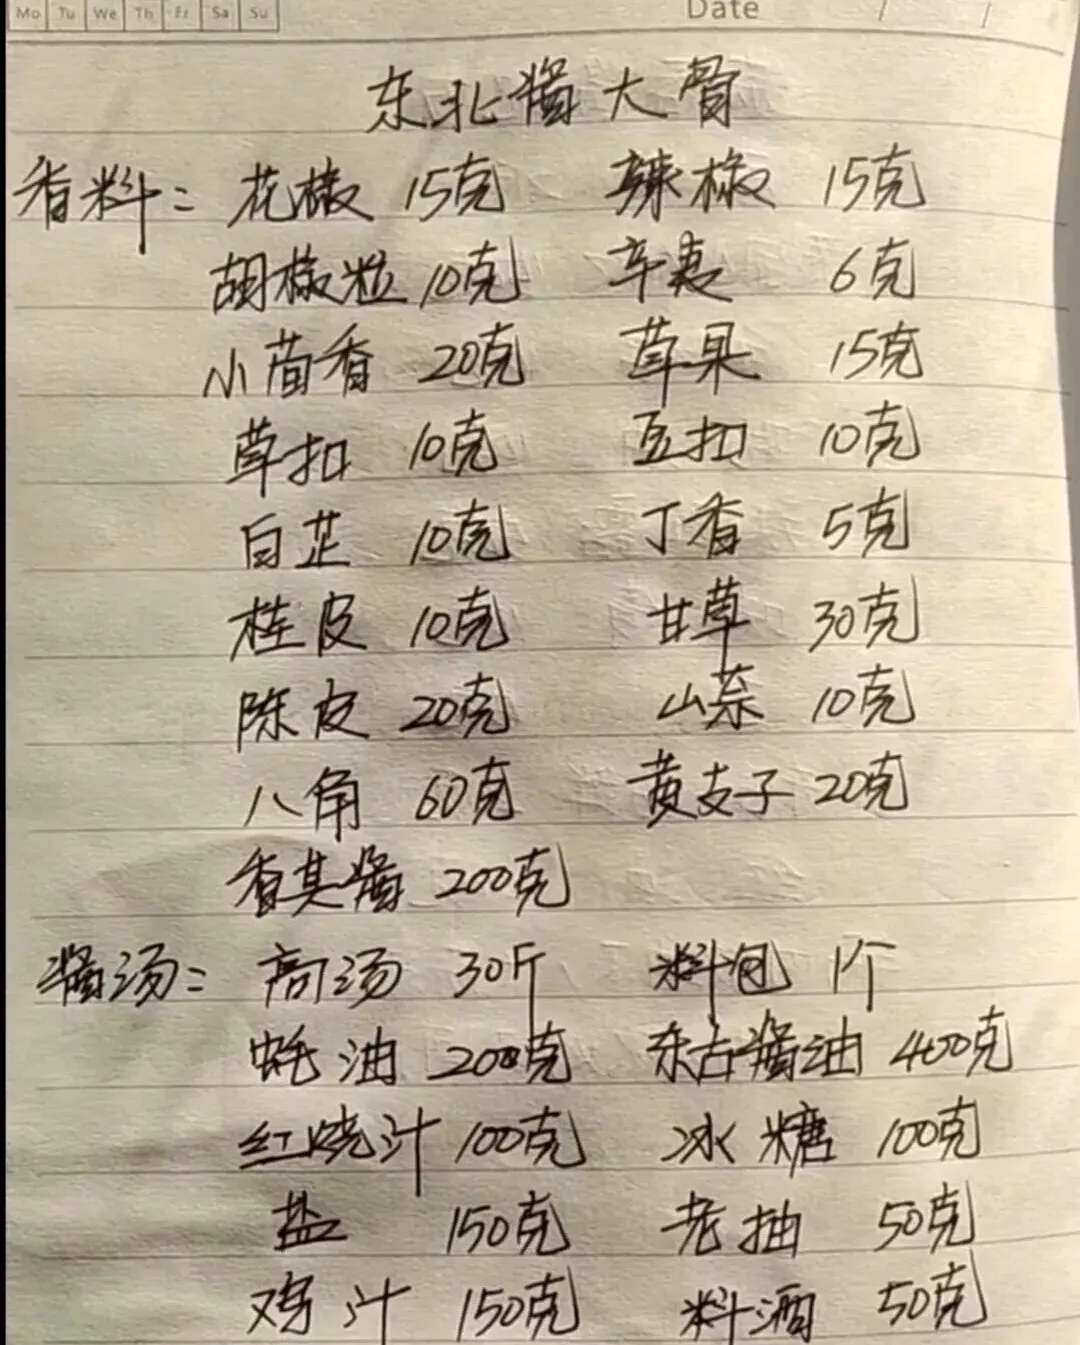 Mo Tu We Th Fr Sa Su Date / /
东北酱大骨
香料: 花椒 15克 辣椒 15克
胡椒粒 10克 辛夷 6克
小茴香 20克 草果 15克
草扣 10克 豆扣 10克
白芷 10克 丁香 5克
桂皮 10克 甘草 30克
陈皮 20克 山奈 10克
八角 60克 黄支子 20克
香其酱 200克
酱汤: 高汤 30斤 料包 1个
蚝油 200克 东古酱油 400克
红烧汁 100克 冰糖 100克
盐 150克 老抽 50克
鸡汁 150克 料酒 50克